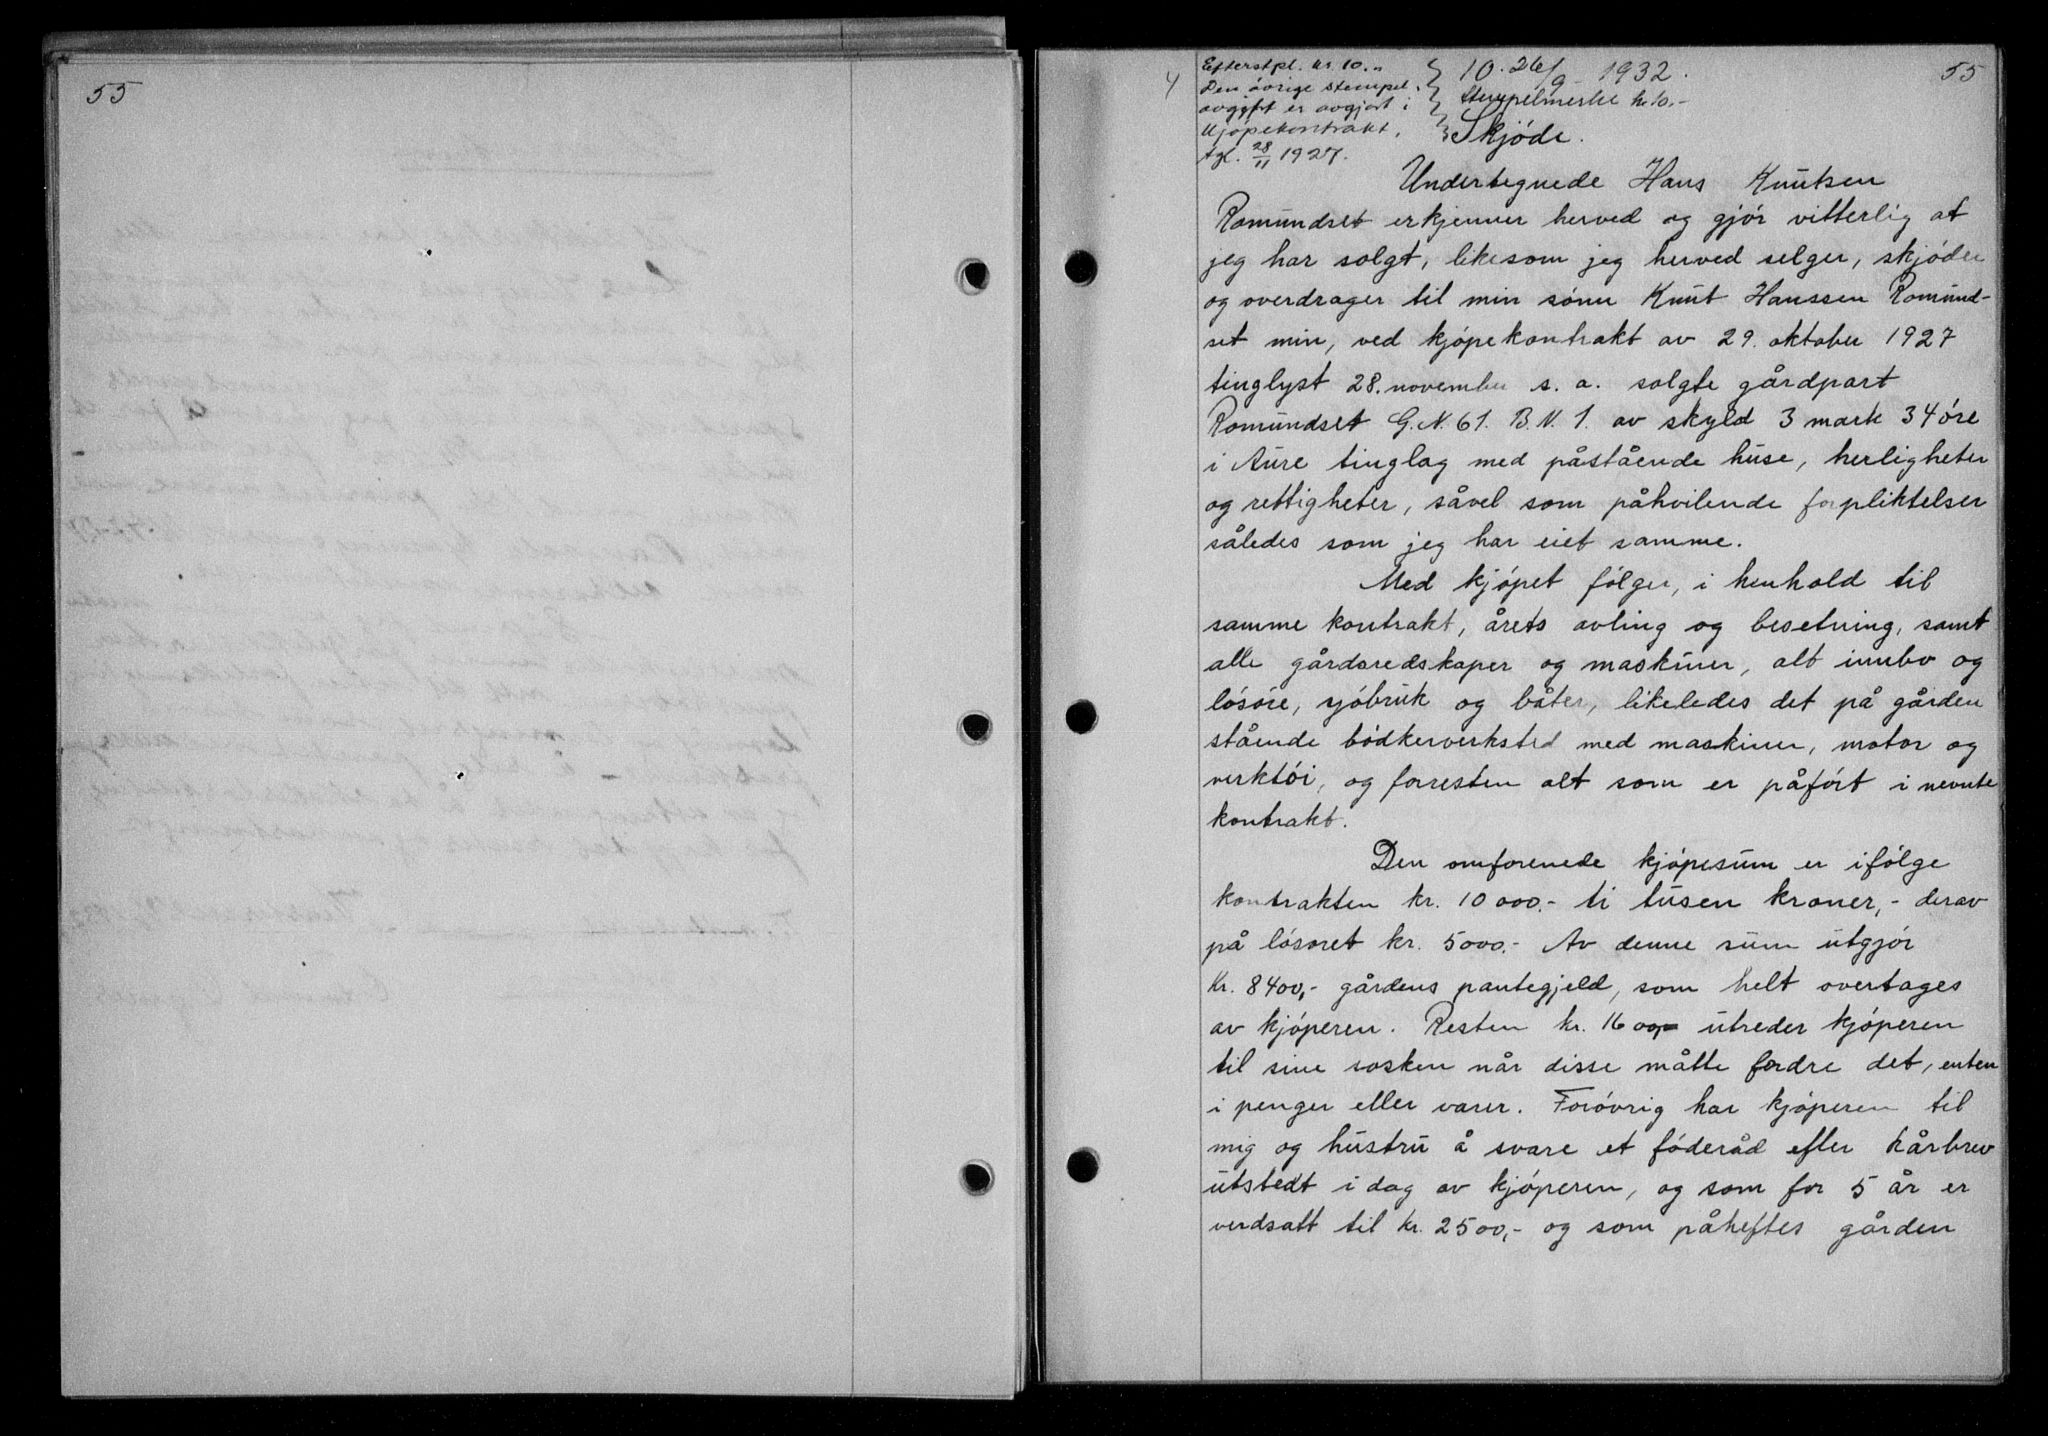 55
4
Efterstpl. kr. 10.-
Den övrige stempel-
avgift er avgjort i
Kjöpekontrakt,
tgl. 28/11 1927.
10. 26/9 - 1932.
55
Stempelmerke kr. 10.-
Skjöde.
Undertegnede Hans Knutsen
Romundset erkjenner herved og gjör vitterlig at
jeg har solgt, likesom jeg herved selger, skjöder
og overdrager til min sönn Knut Hanssen Romund-
set min, ved kjöpekontrakt av 29. oktober 1927
tinglyst 28. november s. a. solgte gårdpart
Romundset G.N. 61. B.N. 1. av skyld 3 mark 34 öre
i Aure tinglag med påstående huse, herligheter
og rettigheter, såvel som påhvilende forpliktelser
således som jeg har eiet samme.
Med kjöpet fölger, i henhold til
samme kontrakt, årets avling og besetning, samt
alle gårdsredskaper og maskiner, alt innbo og
lösöre, sjöbruk og båter, likeledes det på gården
stående bödkerverksted med maskiner, motor og
verktöi, og forresten alt som er påfört i nevnte
kontrakt.
Den omforenede kjöpesum er ifölge
kontrakten kr. 10 000.- ti tusen kroner,- derav
på lösoret kr. 5000.- Av denne sum utgjör
Kr. 8400,- gårdens pantegjeld, som helt overtages
av kjöperen. Resten kr. 1600,- utreder kjöperen
til sine sosken når disse måtte fordre det, enten
i penger eller varer. Forövrig har kjöperen til
mig og hustru å svare et föderåd efter kårbrev
utstedt i dag av kjöperen, og som for 5 år er
verdsatt til kr. 2500,- og som påheftes gården